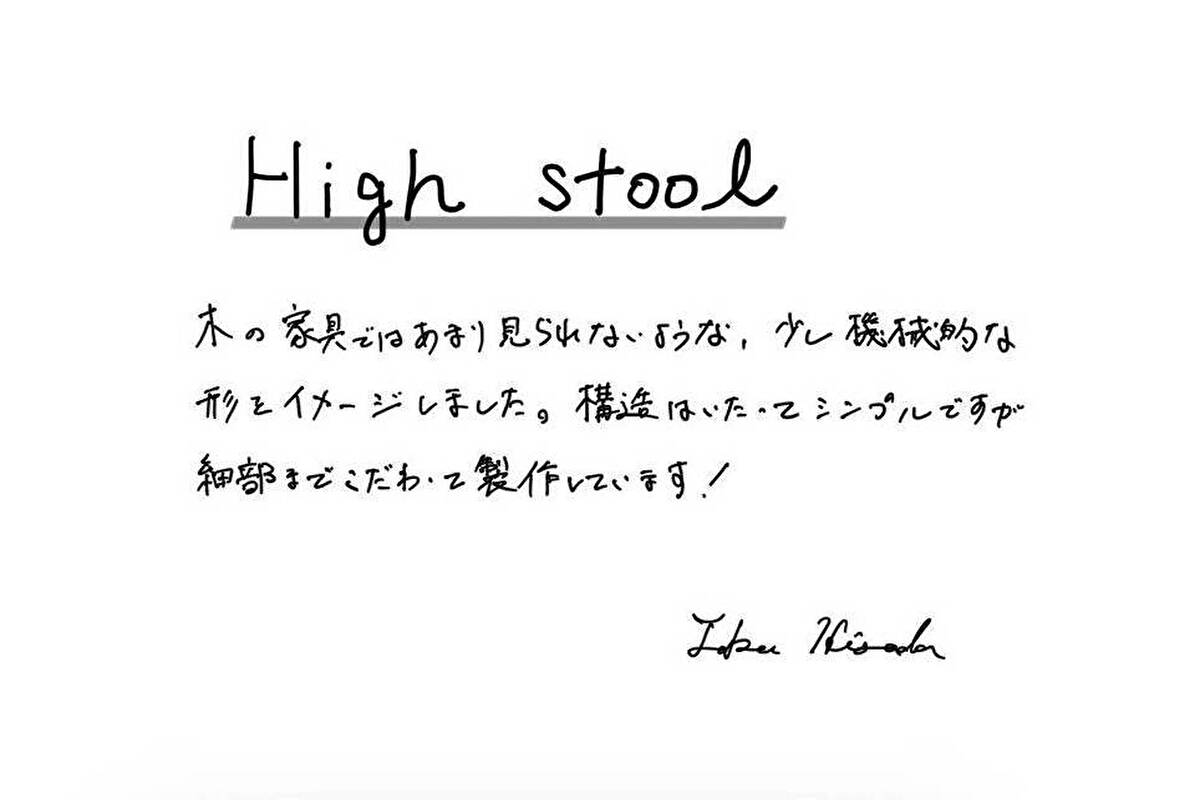 High stool
木の家具ではあまり見られないような、少し機械的な
形をイメージしました。構造はいたってシンプルですが
細部までこだわって製作しています!
Hisada